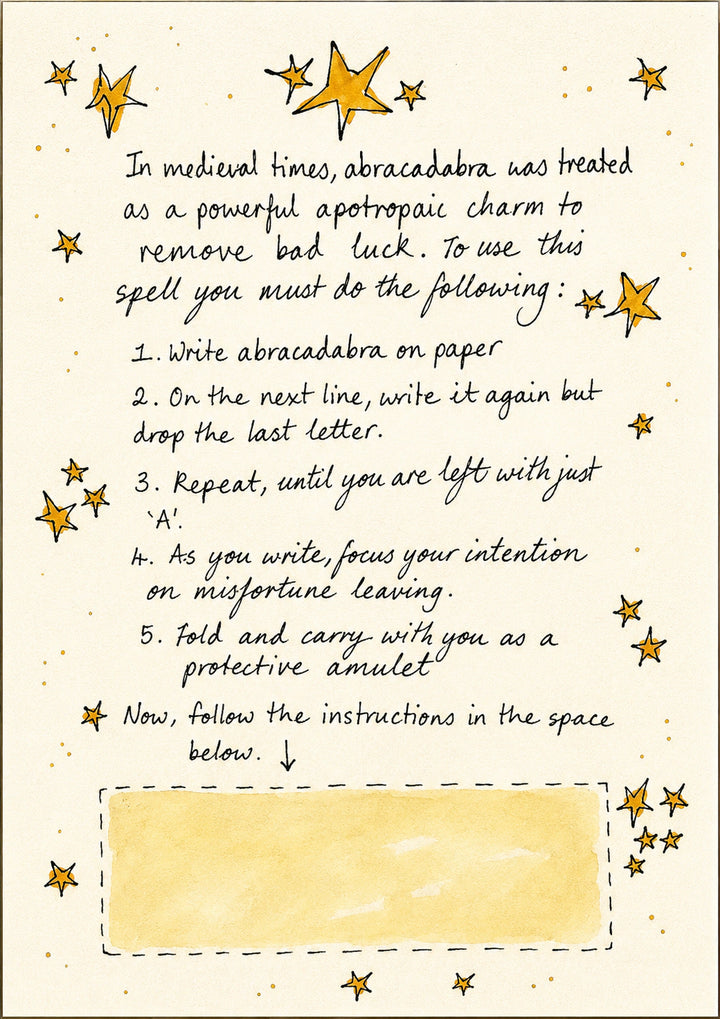 In medieval times, abracadabra was treated
as a powerful apotropaic charm to
remove bad luck. To use this
spell you must do the following:
1. Write abracadabra on paper
2. On the next line, write it again but
drop the last letter.
3. Repeat, until you are left with just
'A'.
4. As you write, focus your intention
on misfortune leaving.
5. Fold and carry with you as a
protective amulet
Now, follow the instructions in the space
below. ↓